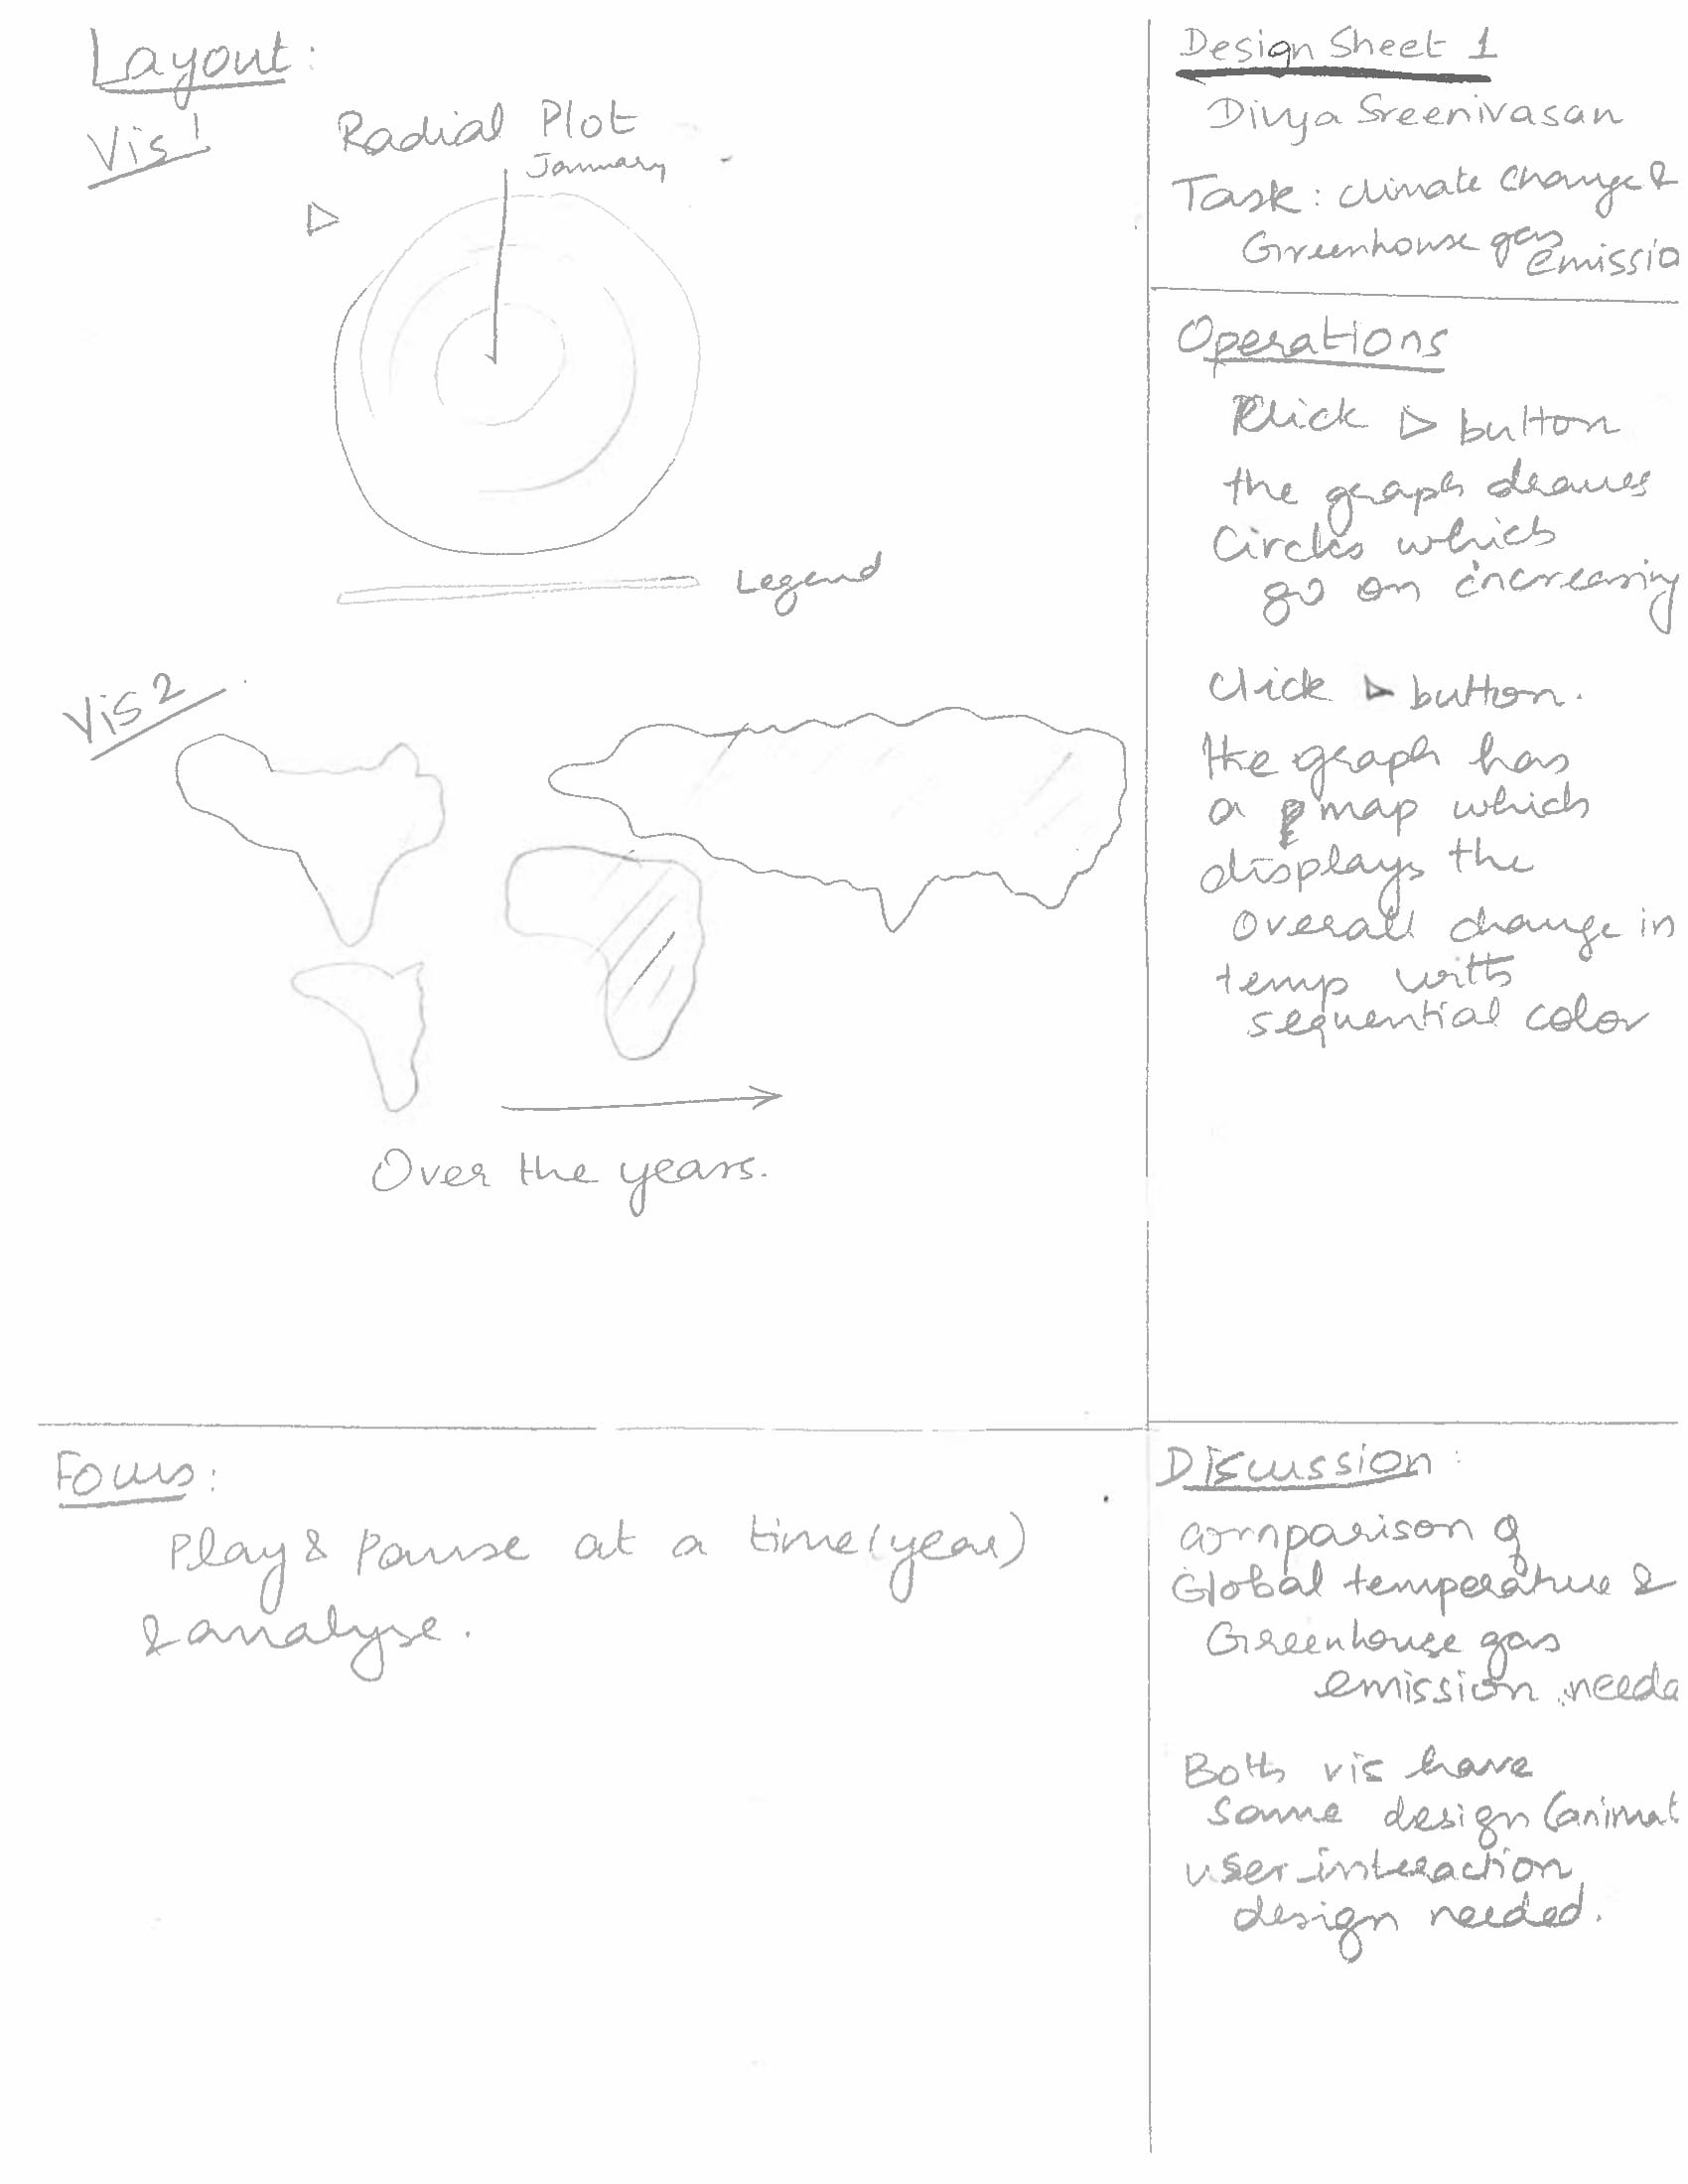 Layout:
Vis 1
Radial Plot
January
Legend
Vis 2
Over the years.
Design Sheet 1
Divya Sreenivasan
Task: climate change &
Greenhouse gas
emissio
Operations
Click ▷ button
the graph draws
Circles which
go on increasing
Click ▷ button.
the graph has
a map which
displays the
overall change in
temp with
sequential color
Focus:
Play & Pause at a time (year)
& analyse.
Discussion:
comparison of
Global temperature &
Greenhouse gas
emission needa
Both vis have
same design (animat
user interaction
design needed.